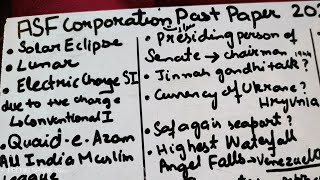 ASF Corporation Past Paper 202
• Solar Eclipse
• Lunar
• Electric Charge SI
due to the charge
↳ Conventional I
• Quaid-e-Azam
All India Muslim
League
• Presiding person of
Senate → chairman 1944
• Jinnah gandhi talk?
• Currency of Ukrane?
Hryvnia
• Safaga is seaport?
• Highest Waterfall
Angel Falls → Venezuela